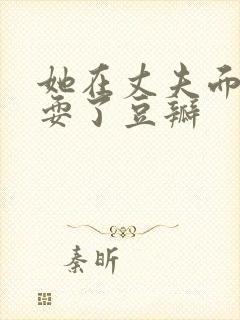 她在丈夫而
耍了豆瓣
秦昕